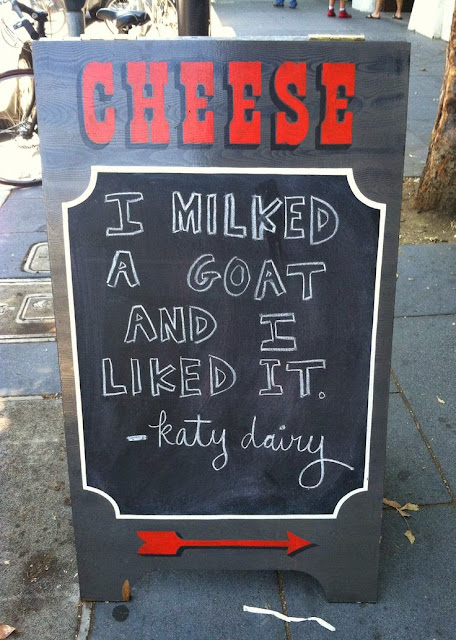 CHEESE
I MILKED
A GOAT
AND I
LIKED IT.
-katy dairy